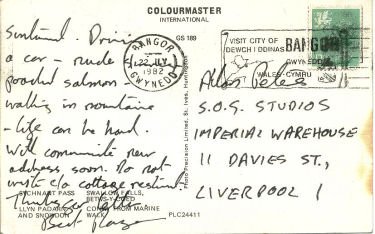 COLOURMASTER
INTERNATIONAL
GS 189
Suntanned. Driving
a car - nude
poached salmon -
walking in mountains
- life can be hard.
Will communicate new
address soon. Do not
write c/o cottage
Thank you
Best
SYCHNANT PASS
SWALLOW FALLS,
BETWS-Y-COED
LLYN PADARN
AND SNOWDON
CONWY FROM MARINE
WALK
PLC24411
Photo Precision Limited, St. Ives, Huntingdon
BANGOR
22 JLY
1982
GWYNEDD
VISIT CITY OF
DEWCH I DDINAS
BANGOR
GWYNEDD
WALES-CYMRU
Alan
S.O.S. STUDIOS
IMPERIAL WAREHOUSE
11 DAVIES ST.,
LIVERPOOL 1